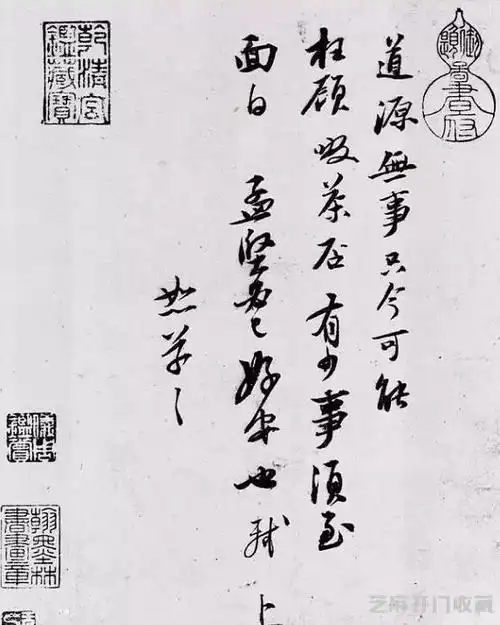 道源無事只今可能
枉顧啜茶否有少事須至
面白孟堅必已好安也軾上
恕草々
乾清宮
鑑藏寶
翰墨林
書畫章
芝麻开门收藏